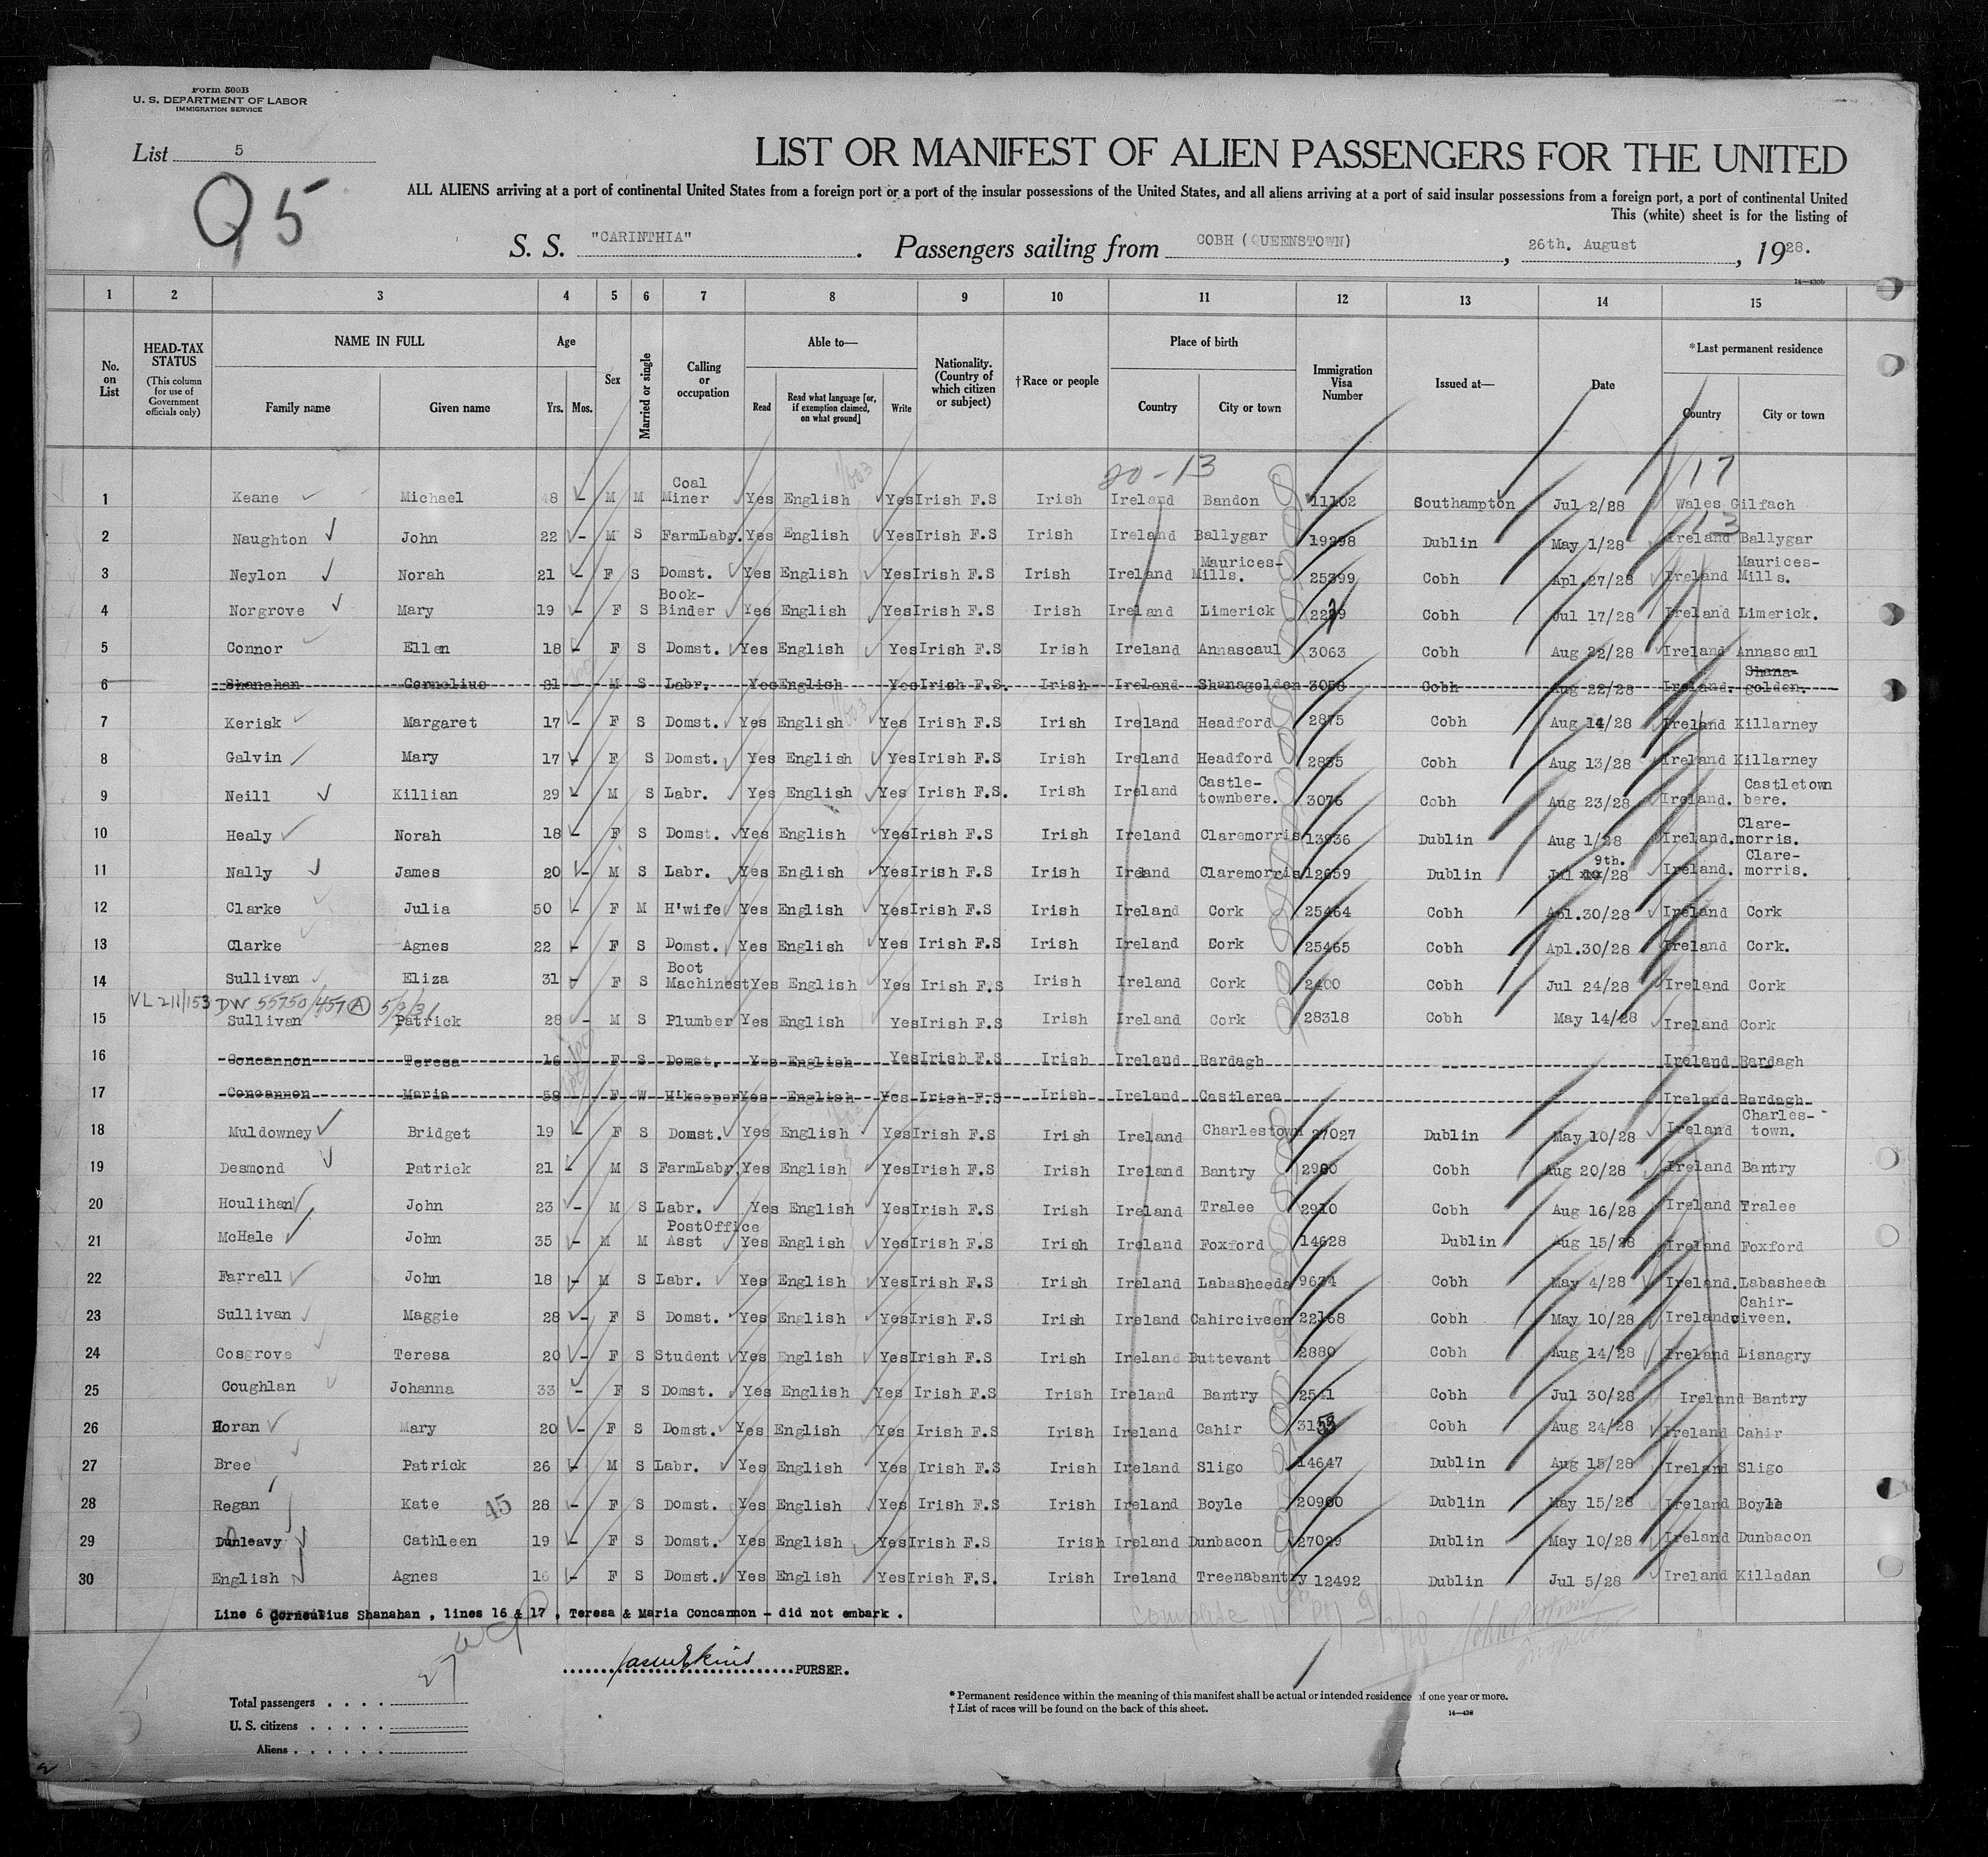 Form 500B
U. S. DEPARTMENT OF LABOR
IMMIGRATION SERVICE
List 5
Q5
LIST OR MANIFEST OF ALIEN PASSENGERS FOR THE UNITED
ALL ALIENS arriving at a port of continental United States from a foreign port or a port of the insular possessions of the United States, and all aliens arriving at a port of said insular possessions from a foreign port, a port of continental United
This (white) sheet is for the listing of
S. S. "CARINTHIA". Passengers sailing from COBH (QUEENSTOWN), 26th. August, 1928.
14—430b
1 2 3 4 5 6 7 8 9 10 11 12 13 14 15
No. on List
HEAD-TAX STATUS (This column for use of Government officials only)
NAME IN FULL
Family name Given name
Age Yrs. Mos.
Sex
Married or single
Calling or occupation
Able to—
Read Read what language [or, if exemption claimed, on what ground] Write
Nationality. (Country of which citizen or subject)
†Race or people
Place of birth
Country City or town
Immigration Visa Number
Issued at—
Date
*Last permanent residence
Country City or town
20-13 17
1 Keane Michael 48 - M M Coal Miner Yes English Yes Irish F.S Irish Ireland Bandon 11102 Southampton Jul 2/28 Wales Gilfach
13
2 Naughton John 22 - M S FarmLabr. Yes English Yes Irish F.S Irish Ireland Ballygar 19298 Dublin May 1/28 Ireland Ballygar
3 Neylon Norah 21 - F S Domst. Yes English Yes Irish F.S Irish Ireland Maurices-Mills. 25399 Cobh Apl.27/28 Ireland Maurices-Mills.
4 Norgrove Mary 19 - F S Book-Binder Yes English Yes Irish F.S Irish Ireland Limerick Cobh Jul 17/28 Ireland Limerick.
5 Connor Ellen 18 - F S Domst. Yes English Yes Irish F.S Irish Ireland Annascaul 3063 Cobh Aug 22/28 Ireland Annascaul
6 Shanahan Cornelius 21 - M S Labr. Yes English Yes Irish F.S. Irish Ireland Shanagolden 3058 Cobh Aug 22/28 Ireland. Shana-golden.
7 Kerisk Margaret 17 - F S Domst. Yes English Yes Irish F.S Irish Ireland Headford 2875 Cobh Aug 14/28 Ireland Killarney
8 Galvin Mary 17 - F S Domst. Yes English Yes Irish F.S Irish Ireland Headford 2835 Cobh Aug 13/28 Ireland Killarney
9 Neill Killian 29 - M S Labr. Yes English Yes Irish F.S. Irish Ireland Castle-townbere. 3076 Cobh Aug 23/28 Ireland. Castletown bere.
10 Healy Norah 18 - F S Domst. Yes English Yes Irish F.S Irish Ireland Claremorris 13936 Dublin Aug 1/28 Ireland. Clare-morris.
11 Nally James 20 - M S Labr. Yes English Yes Irish F.S Irish Ireland Claremorris 12659 Dublin Jul 9th. /28 Ireland. Clare-morris.
12 Clarke Julia 50 - F M H'wife Yes English Yes Irish F.S Irish Ireland Cork 25464 Cobh Apl.30/28 Ireland Cork
13 Clarke Agnes 22 - F S Domst. Yes English Yes Irish F.S Irish Ireland Cork 25465 Cobh Apl.30/28 Ireland Cork.
14 Sullivan Eliza 31 - F S Boot Machinest Yes English Yes Irish F.S Irish Ireland Cork 2400 Cobh Jul 24/28 Ireland Cork
VL 211/153 DW 55750/457 A 5/9/31
15 Sullivan Patrick 28 - M S Plumber Yes English Yes Irish F.S Irish Ireland Cork 28318 Cobh May 14/28 Ireland Cork
16 Concannon Teresa 16 F S Domst. Yes English Yes Irish F.S Irish Ireland Rardagh Ireland Rardagh
17 Concannon Maria 58 F W H'keeper Yes English Yes Irish F.S Irish Ireland Castlerea Ireland Rardagh
18 Muldowney Bridget 19 - F S Domst. Yes English Yes Irish F.S Irish Ireland Charlestown 27027 Dublin May 10/28 Ireland Charles-town.
19 Desmond Patrick 21 - M S FarmLabr. Yes English Yes Irish F.S Irish Ireland Bantry 2980 Cobh Aug 20/28 Ireland Bantry
20 Houlihan John 23 - M S Labr. Yes English Yes Irish F.S Irish Ireland Tralee 2910 Cobh Aug 16/28 Ireland Tralee
21 McHale John 35 - M M PostOffice Asst Yes English Yes Irish F.S Irish Ireland Foxford 14628 Dublin Aug 15/28 Ireland Foxford
22 Farrell John 18 - M S Labr. Yes English Yes Irish F.S Irish Ireland Labasheeda Cobh May 4/28 Ireland. Labasheeda
23 Sullivan Maggie 28 - F S Domst. Yes English Yes Irish F.S Irish Ireland Cahirciveen 22168 Cobh May 10/28 Ireland Cahir-civeen.
24 Cosgrove Teresa 20 - F S Student Yes English Yes Irish F.S Irish Ireland Buttevant 2880 Cobh Aug 14/28 Ireland Lisnagry
25 Coughlan Johanna 33 - F S Domst. Yes English Yes Irish F.S Irish Ireland Bantry 2541 Cobh Jul 30/28 Ireland Bantry
26 Horan Mary 20 - F S Domst. Yes English Yes Irish F.S Irish Ireland Cahir Cobh Aug 24/28 Ireland Cahir
27 Bree Patrick 26 - M S Labr. Yes English Yes Irish F.S Irish Ireland Sligo 14647 Dublin Aug 15/28 Ireland Sligo
28 Regan Kate 45 28 - F S Domst. Yes English Yes Irish F.S Irish Ireland Boyle 20900 Dublin May 15/28 Ireland Boyle
29 Dunleavy Cathleen 19 - F S Domst. Yes English Yes Irish F.S Irish Ireland Dunbacon 27029 Dublin May 10/28 Ireland Dunbacon
30 English Agnes 16 - F S Domst. Yes English Yes Irish F.S. Irish Ireland Treenabantry 12492 Dublin Jul 5/28 Ireland Killadan
Line 6 Corneulius Shanahan , lines 16 & 17 , Teresa & Maria Concannon - did not embark .
complete
27
PURSER.
Total passengers
U. S. citizens
Aliens
* Permanent residence within the meaning of this manifest shall be actual or intended residence of one year or more.
† List of races will be found on the back of this sheet.
14—430